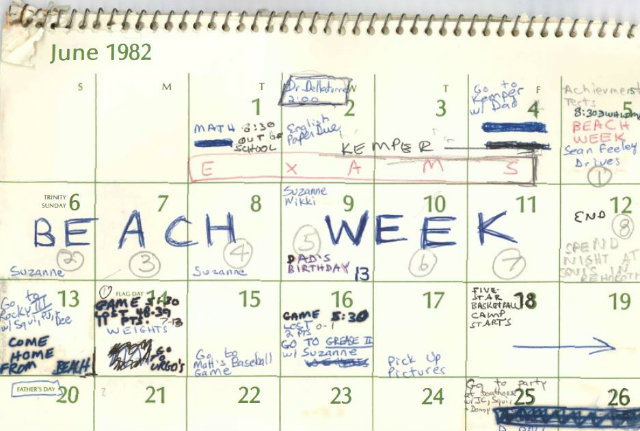 June 1982
S M T W T F S
Dr.
2:00
1 2 3 4 5
MATH 8:30
OUT OF
SCHOOL
English
Paper Due
Go to
Kemper
w/ Dad
Achievement
Tests
8:30
BEACH
WEEK
Sean Feeley
Drives
1
KEMPER
E X A M S
TRINITY
SUNDAY
6 7 8 9 10 11 12
Suzanne
Nikki
BEACH WEEK
END
2 3 4 5 6 7 8
Suzanne
Suzanne
DAD'S
BIRTHDAY
13
SPEND
NIGHT AT
SQUI'S IN
REHOBOTH
13
Go to
Rocky III
w/ Squi, PJ, Bee
COME
HOME
FROM BEACH
FLAG DAY
14
1
GAME 5:30
LOST 48-39
11 PTS.
WEIGHTS
GO TO
URGO'S
15
Go to
Matt's Baseball
Game
16
GAME 5:30
LOST
2 PTS
GO TO GREASE II
w/ Suzanne
17
Pick Up
Pictures
18
FIVE-
STAR
BASKETBALL
CAMP
STARTS
19
FATHER'S DAY
20 21 22 23 24 25 26
Go to party
at boathouse
w/ JC, Squi
+ Donny